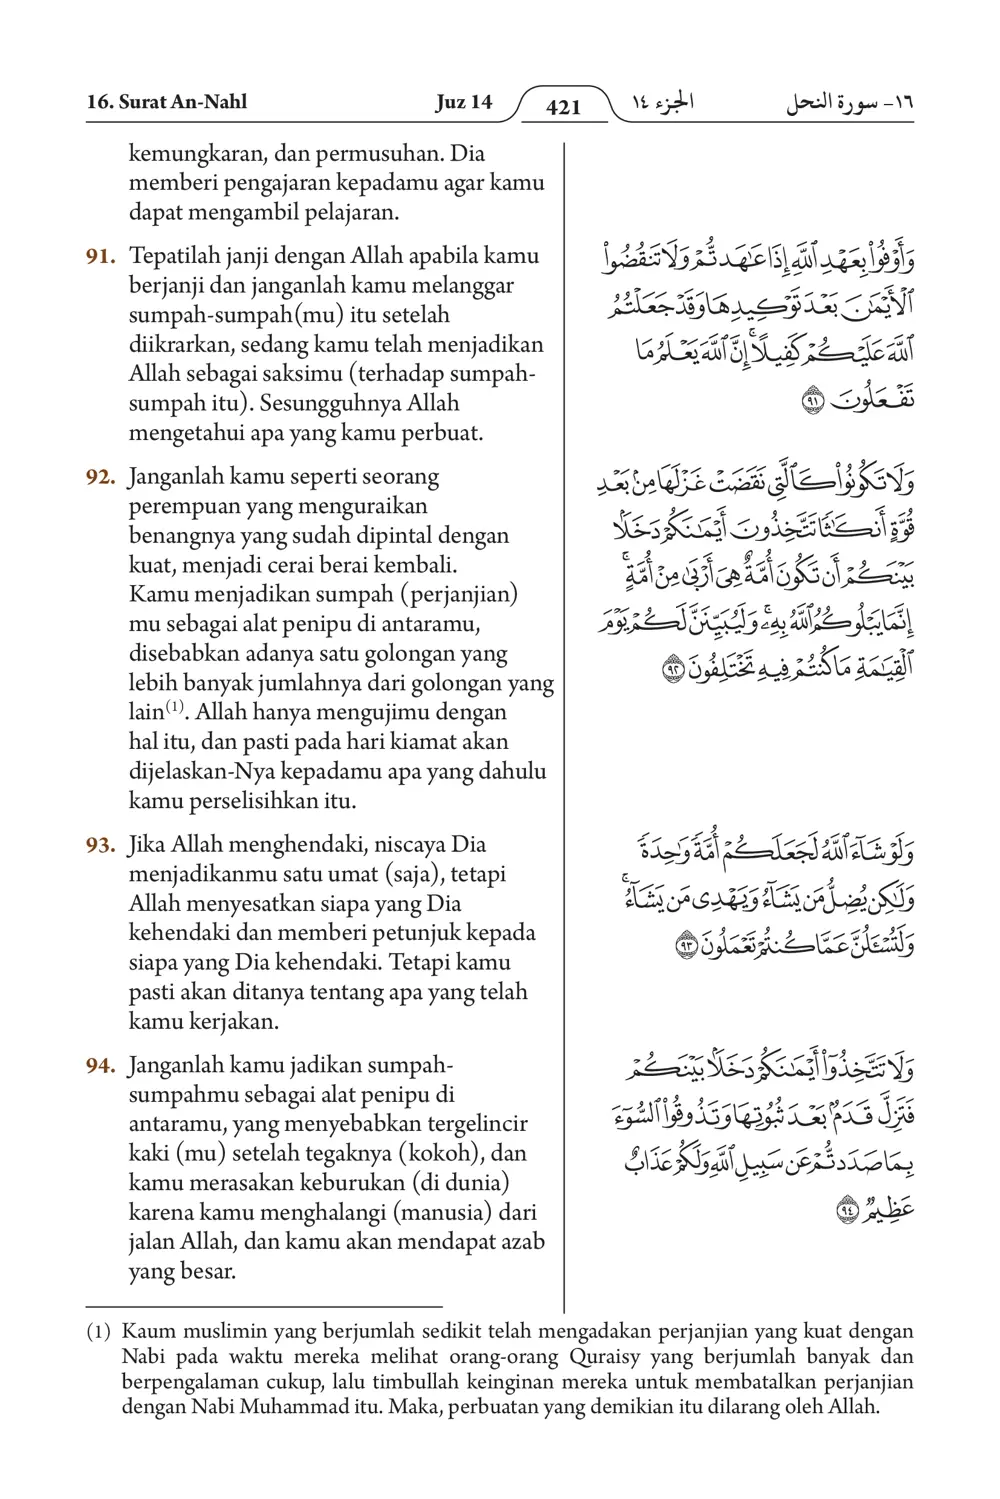 16. Surat An-Nahl
Juz 14
421
الجزء ١٤
١٦- سورة النحل
kemungkaran, dan permusuhan. Dia
memberi pengajaran kepadamu agar kamu
dapat mengambil pelajaran.
91. Tepatilah janji dengan Allah apabila kamu
berjanji dan janganlah kamu melanggar
sumpah-sumpah(mu) itu setelah
diikrarkan, sedang kamu telah menjadikan
Allah sebagai saksimu (terhadap sumpah-
sumpah itu). Sesungguhnya Allah
mengetahui apa yang kamu perbuat.
92. Janganlah kamu seperti seorang
perempuan yang menguraikan
benangnya yang sudah dipintal dengan
kuat, menjadi cerai berai kembali.
Kamu menjadikan sumpah (perjanjian)
mu sebagai alat penipu di antaramu,
disebabkan adanya satu golongan yang
lebih banyak jumlahnya dari golongan yang
lain(1). Allah hanya mengujimu dengan
hal itu, dan pasti pada hari kiamat akan
dijelaskan-Nya kepadamu apa yang dahulu
kamu perselisihkan itu.
93. Jika Allah menghendaki, niscaya Dia
menjadikanmu satu umat (saja), tetapi
Allah menyesatkan siapa yang Dia
kehendaki dan memberi petunjuk kepada
siapa yang Dia kehendaki. Tetapi kamu
pasti akan ditanya tentang apa yang telah
kamu kerjakan.
94. Janganlah kamu jadikan sumpah-
sumpahmu sebagai alat penipu di
antaramu, yang menyebabkan tergelincir
kaki (mu) setelah tegaknya (kokoh), dan
kamu merasakan keburukan (di dunia)
karena kamu menghalangi (manusia) dari
jalan Allah, dan kamu akan mendapat azab
yang besar.
وَأَوْفُوا۟ بِعَهْدِ ٱللَّهِ إِذَا عَـٰهَدتُّمْ وَلَا تَنقُضُوا۟
ٱلْأَيْمَـٰنَ بَعْدَ تَوْكِيدِهَا وَقَدْ جَعَلْتُمُ
ٱللَّهَ عَلَيْكُمْ كَفِيلًا ۚ إِنَّ ٱللَّهَ يَعْلَمُ مَا
تَفْعَلُونَ ٩١
وَلَا تَكُونُوا۟ كَٱلَّتِى نَقَضَتْ غَزْلَهَا مِنۢ بَعْدِ
قُوَّةٍ أَنكَـٰثًا تَتَّخِذُونَ أَيْمَـٰنَكُمْ دَخَلًۢا
بَيْنَكُمْ أَن تَكُونَ أُمَّةٌ هِىَ أَرْبَىٰ مِنْ أُمَّةٍ ۚ
إِنَّمَا يَبْلُوكُمُ ٱللَّهُ بِهِۦ ۚ وَلَيُبَيِّنَنَّ لَكُمْ يَوْمَ
ٱلْقِيَـٰمَةِ مَا كُنتُمْ فِيهِ تَخْتَلِفُونَ ٩٢
وَلَوْ شَآءَ ٱللَّهُ لَجَعَلَكُمْ أُمَّةً وَٰحِدَةً
وَلَـٰكِن يُضِلُّ مَن يَشَآءُ وَيَهْدِى مَن يَشَآءُ ۚ
وَلَتُسْـَٔلُنَّ عَمَّا كُنتُمْ تَعْمَلُونَ ٩٣
وَلَا تَتَّخِذُوٓا۟ أَيْمَـٰنَكُمْ دَخَلًۢا بَيْنَكُمْ
فَتَزِلَّ قَدَمٌۢ بَعْدَ ثُبُوتِهَا وَتَذُوقُوا۟ ٱلسُّوٓءَ
بِمَا صَدَدتُّمْ عَن سَبِيلِ ٱللَّهِ وَلَكُمْ عَذَابٌ
عَظِيمٌ ٩٤
(1) Kaum muslimin yang berjumlah sedikit telah mengadakan perjanjian yang kuat dengan
Nabi pada waktu mereka melihat orang-orang Quraisy yang berjumlah banyak dan
berpengalaman cukup, lalu timbullah keinginan mereka untuk membatalkan perjanjian
dengan Nabi Muhammad itu. Maka, perbuatan yang demikian itu dilarang oleh Allah.